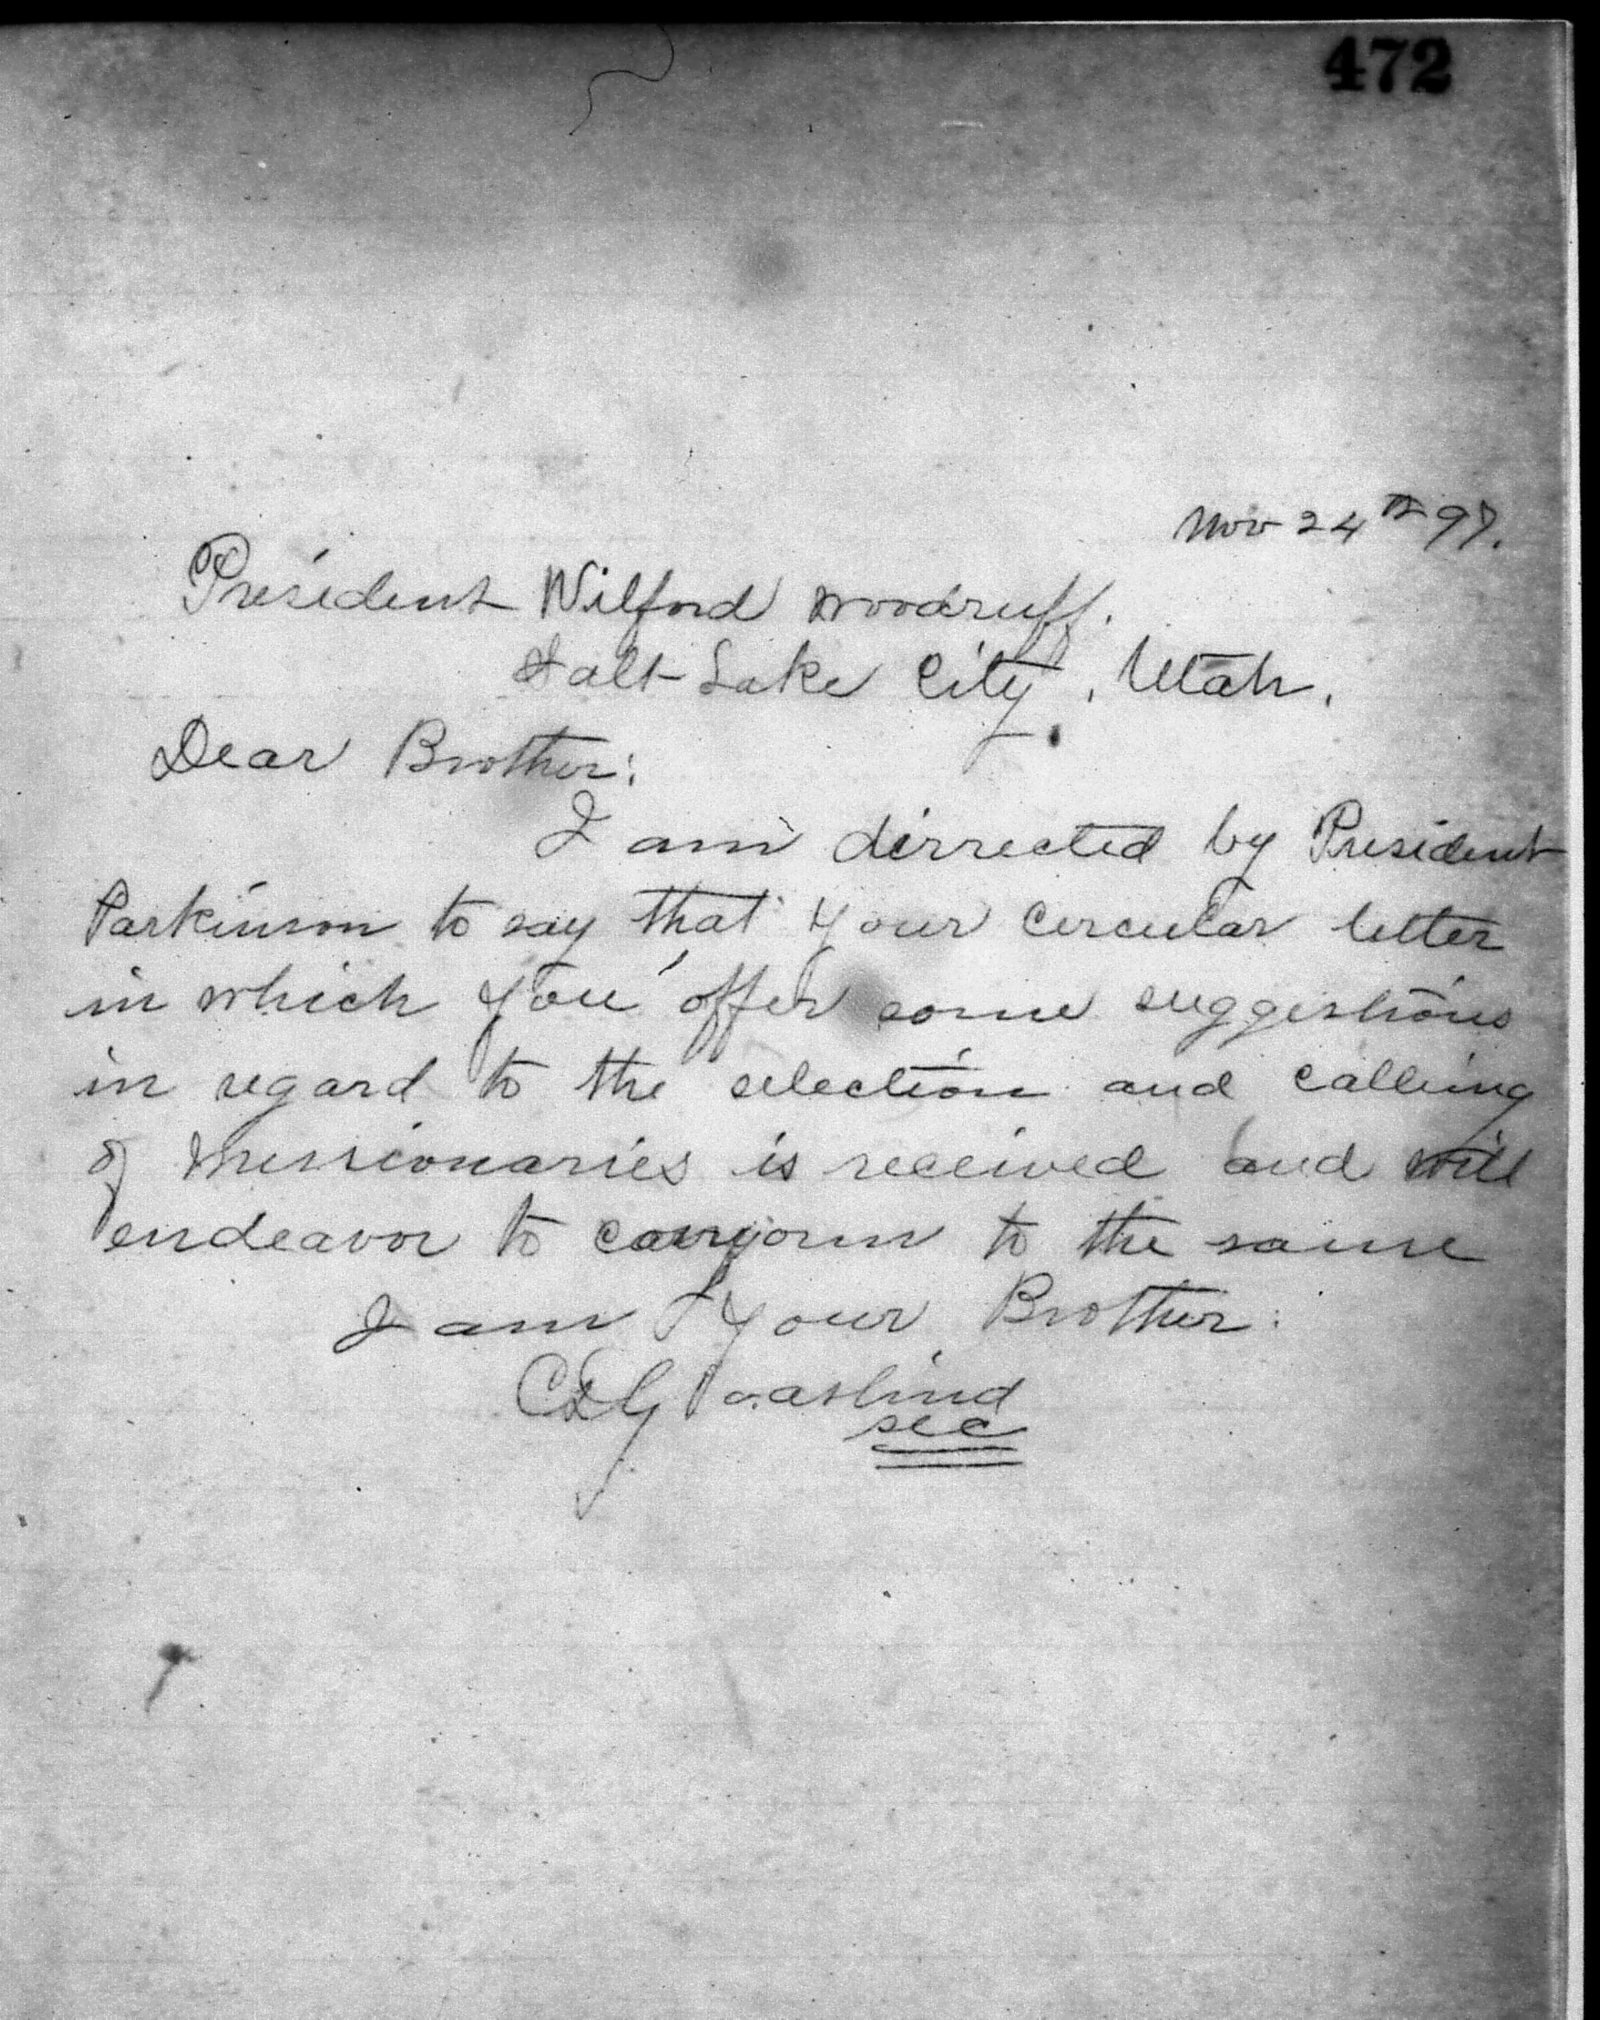 472
Nov 24th 97.
President Wilford Woodruff.
Salt Lake City, Utah.
Dear Brother:
I am dirrected by President
Parkinson to say that your circular letter
in which you offer some suggestions
in regard to the selection and calling
of missionaries is received and will
endeavor to conform to the same
I am Your Brother:
sec